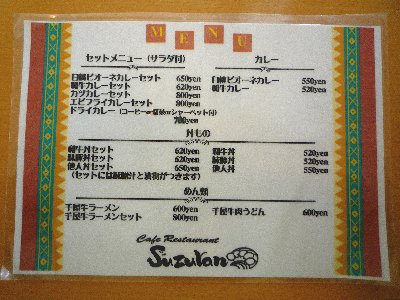 MENU
セットメニュー（サラダ付）
日替ピオーネカレーセット 650yen
和牛カレーセット 620yen
カツカレーセット 800yen
エビフライカレーセット 800yen
ドライカレー（コーヒーorシャーベット付）
700yen
カレー
日替ピオーネカレー 550yen
和牛カレー 520yen
丼もの
和牛丼セット 620yen
丼セット 620yen
他人丼セット 650yen
（セットには味噌汁と漬物がつきます）
和牛丼 520yen
丼 520yen
他人丼 550yen
めん類
千屋牛ラーメン 600yen
千屋牛ラーメンセット 800yen
千屋牛肉うどん 600yen
Cafe Restaurant
Suzuran